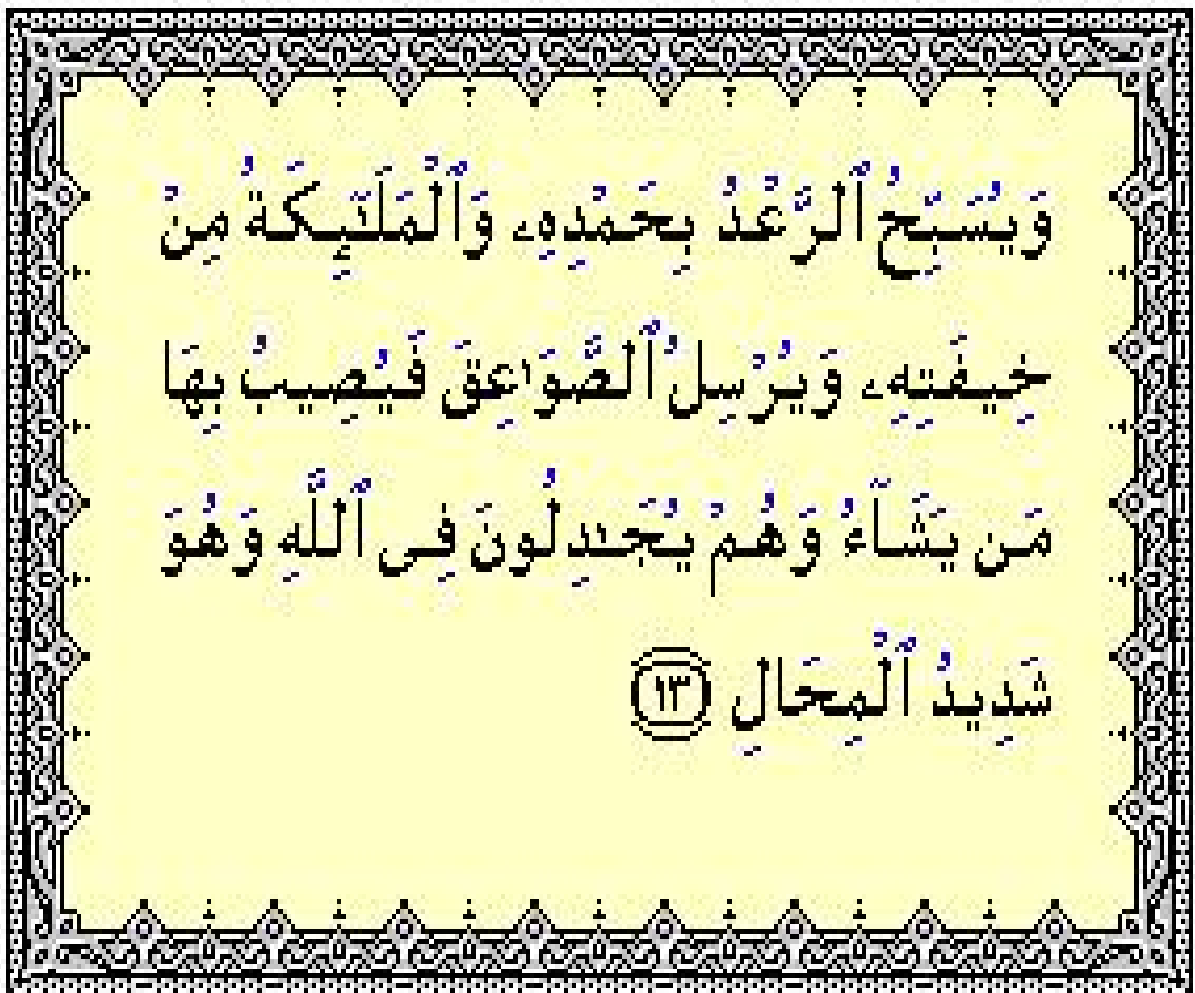 وَيُسَبِّحُ ٱلرَّعْدُ بِحَمْدِهِۦ وَٱلْمَلَـٰٓئِكَةُ مِنْ
خِيفَتِهِۦ وَيُرْسِلُ ٱلصَّوَٰعِقَ فَيُصِيبُ بِهَا
مَن يَشَآءُ وَهُمْ يُجَـٰدِلُونَ فِى ٱللَّهِ وَهُوَ
شَدِيدُ ٱلْمِحَالِ ١٣